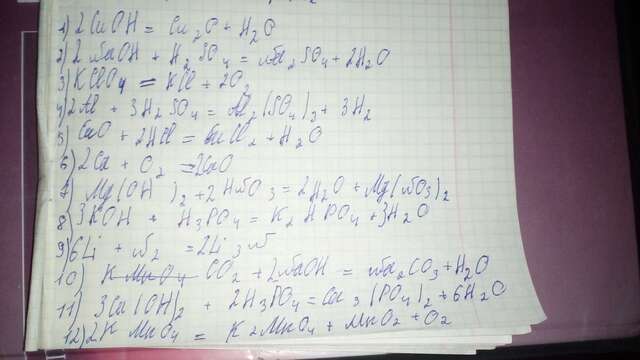 1) 2CuOH = Cu2O + H2O
2) 2NaOH + H2SO4 = Na2SO4 + 2H2O
3) KClO4 = KCl + 2O2
4) 2Al + 3H2SO4 = Al2(SO4)3 + 3H2
5) CaO + 2HCl = CaCl2 + H2O
6) 2Ca + O2 = 2CaO
7) Mg(OH)2 + 2HNO3 = 2H2O + Mg(NO3)2
8) 3KOH + H3PO4 = K2HPO4 + 3H2O
9) 6Li + N2 = 2Li3N
10) KMnO4 CO2 + 2NaOH = Na2CO3 + H2O
11) 3Ca(OH)2 + 2H3PO4 = Ca3(PO4)2 + 6H2O
12) 2KMnO4 = K2MnO4 + MnO2 + O2